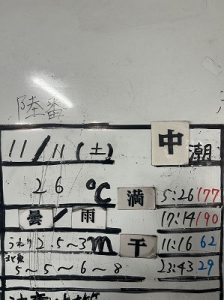 陸番
11/11(土) 中潮
26℃ 満 5:26 177
曇/雨 17:14 190
うねり2.5~3m 干 11:16 62
5~5~6~8 23:43 29